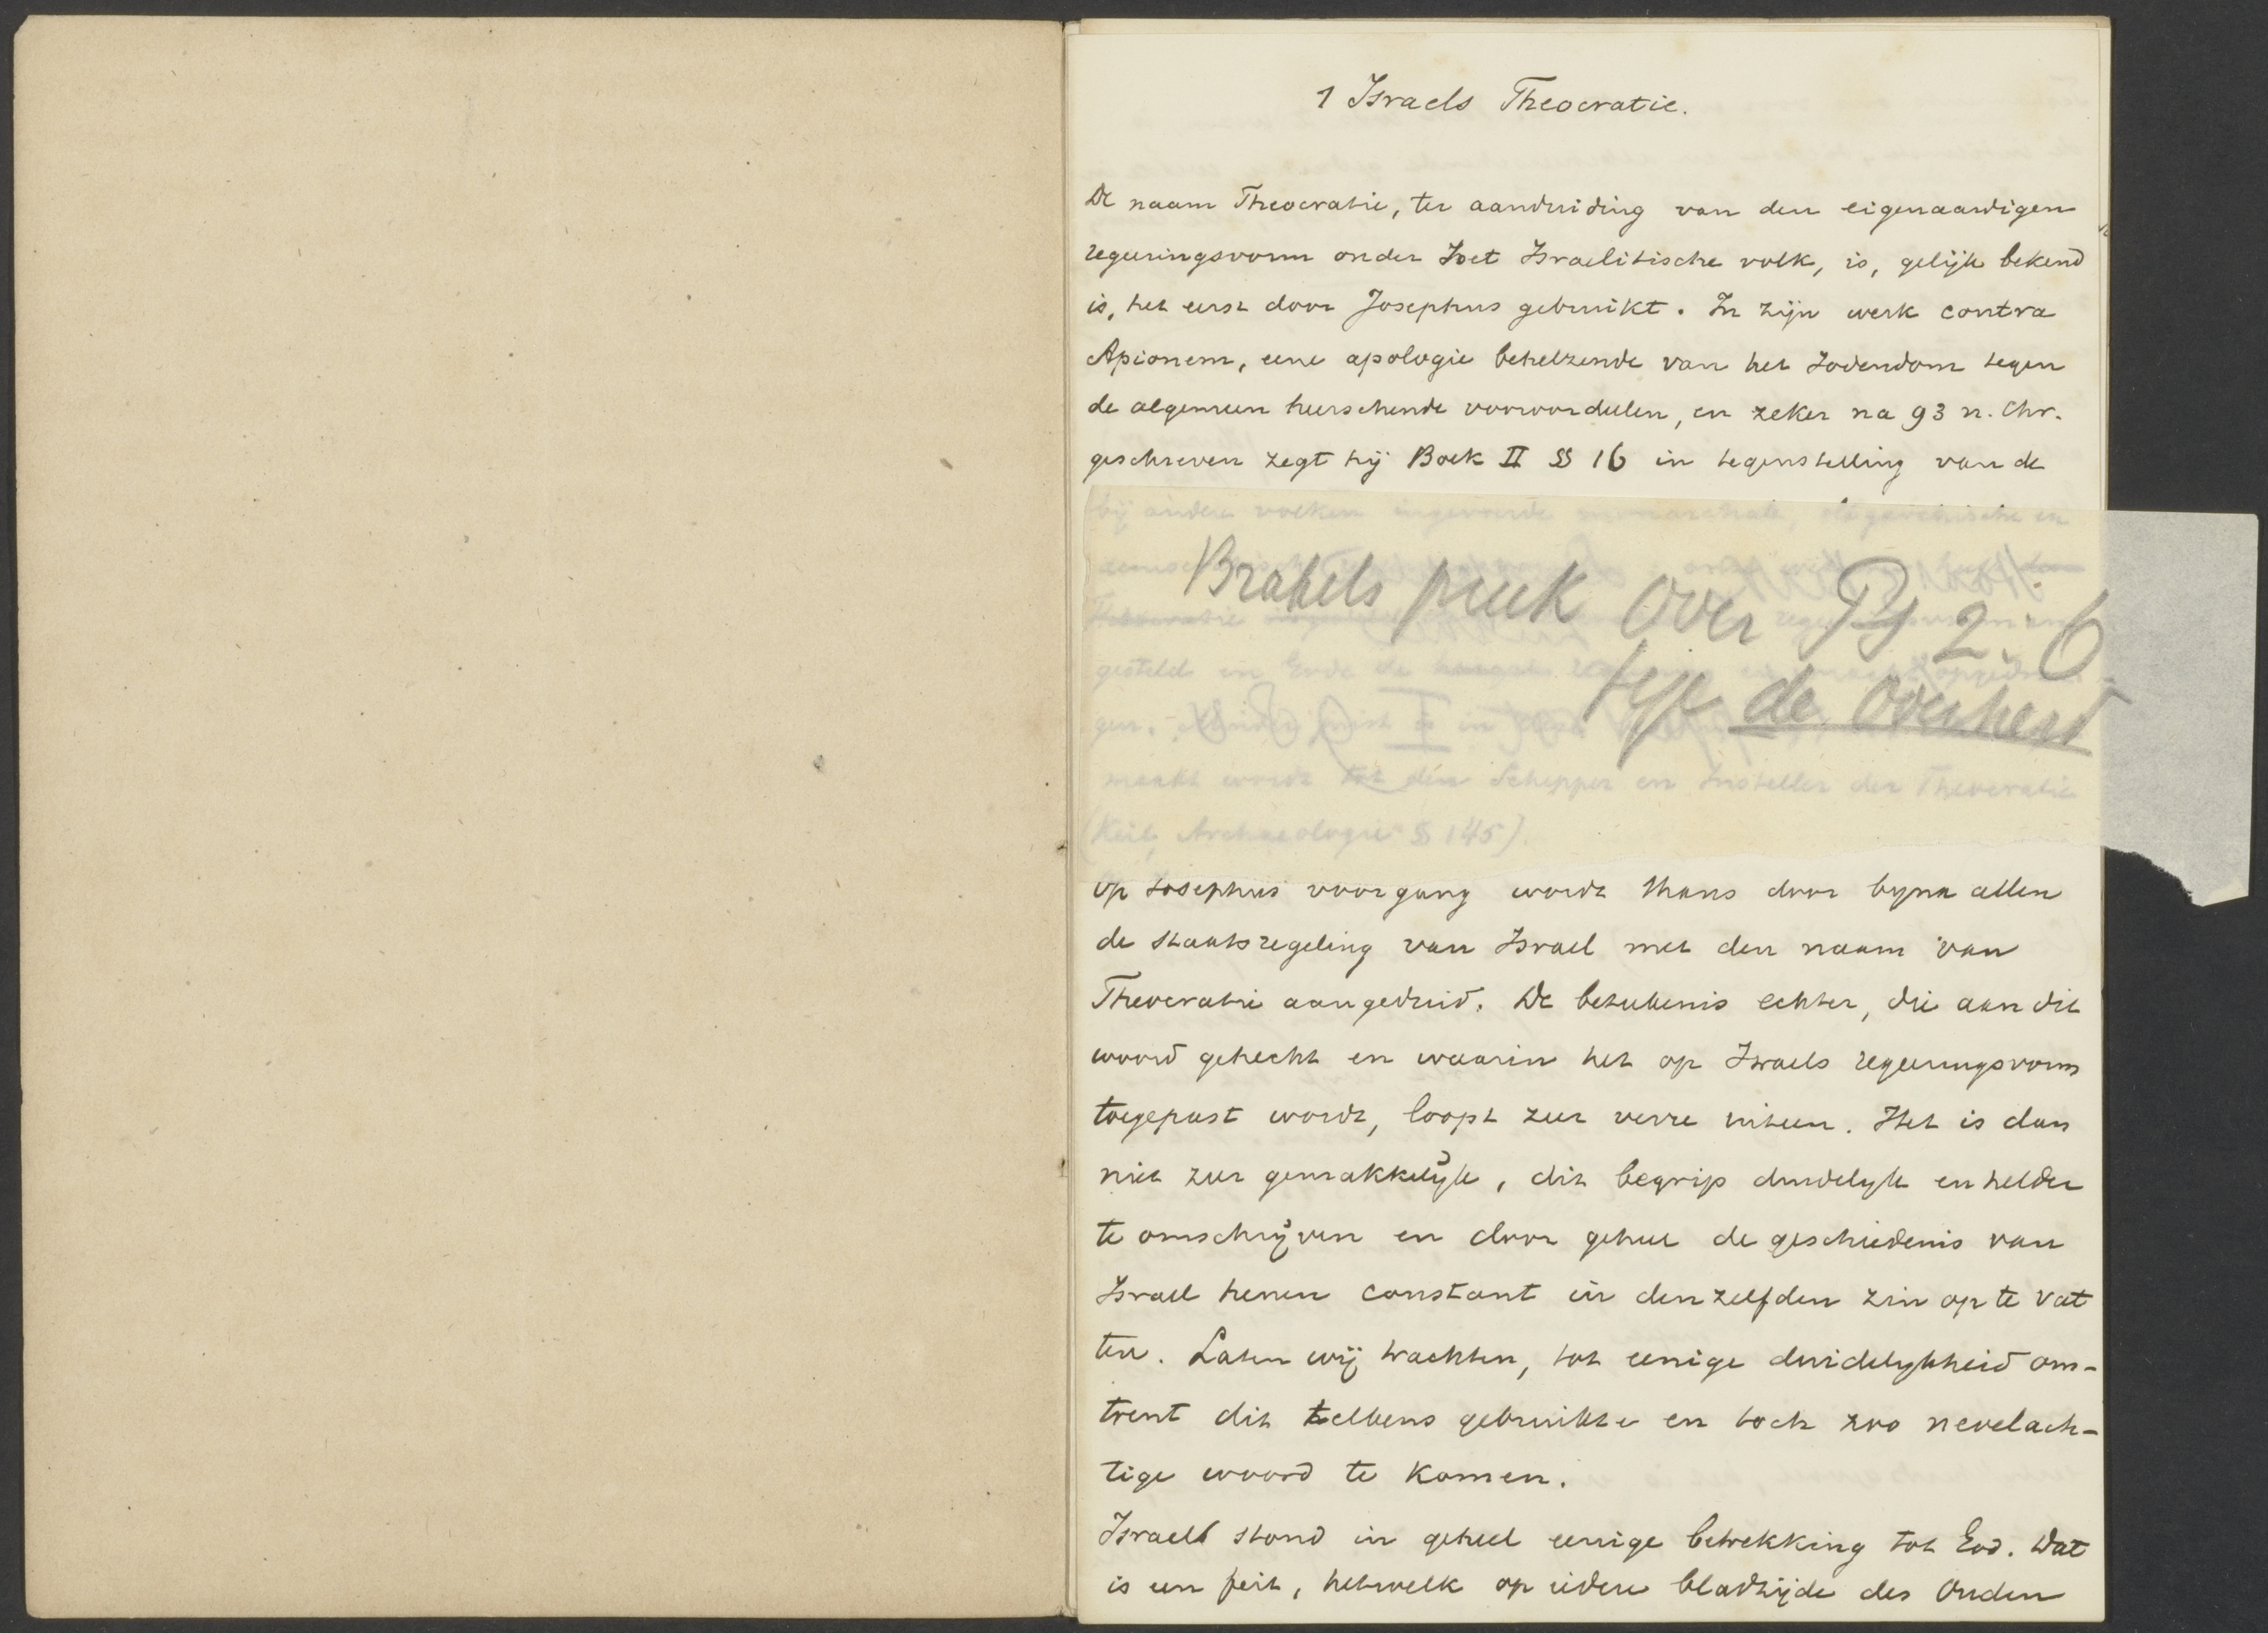 1 Israels Theocratie.
De naam Theocratie, ter aanduiding van den eigenaardigen
regeeringsvorm onder het Israelitische volk, is, gelijk bekend
is, het eerst door Josephus gebruikt. In zijn werk contra
Apionem, eene apologie behelzende van het Jodendom tegen
de algemeen heerschende vooroordeelen, en zeker na 93 n. Chr.
geschreven zegt hij Boek II § 16 in tegenstelling van de
bij andere volken ingevoerde monarchale, oligarchische en
Brakels preek over Ps 2:6
de overheid
gesteld en Gode de
maakt wordt tot den Schepper en Insteller der Theocratie
(Keil, Archaeologie § 145).
op Josephus voorgang wordt thans door byna allen
de staatsregeling van Israel met den naam van
Theocratie aangeduid. De beteekenis echter, die aan dit
woord gehecht en waarin het op Israels regeeringsvorm
toegepast wordt, loopt zeer verre uiteen. Het is dan
niet zeer gemakkelijk, dit begrip duidelyk en helder
te omschrijven en door geheel de geschiedenis van
Israel henen constant in denzelfden zin op te vat
ten. Laten wij trachten, tot eenige duidelykheid om-
trent dit telkens gebruikte en toch zoo nevelach-
tige woord te komen.
Israel stond in geheel eenige betrekking tot God. Dat
is een feit, hetwelk op iedere bladzijde des Ouden